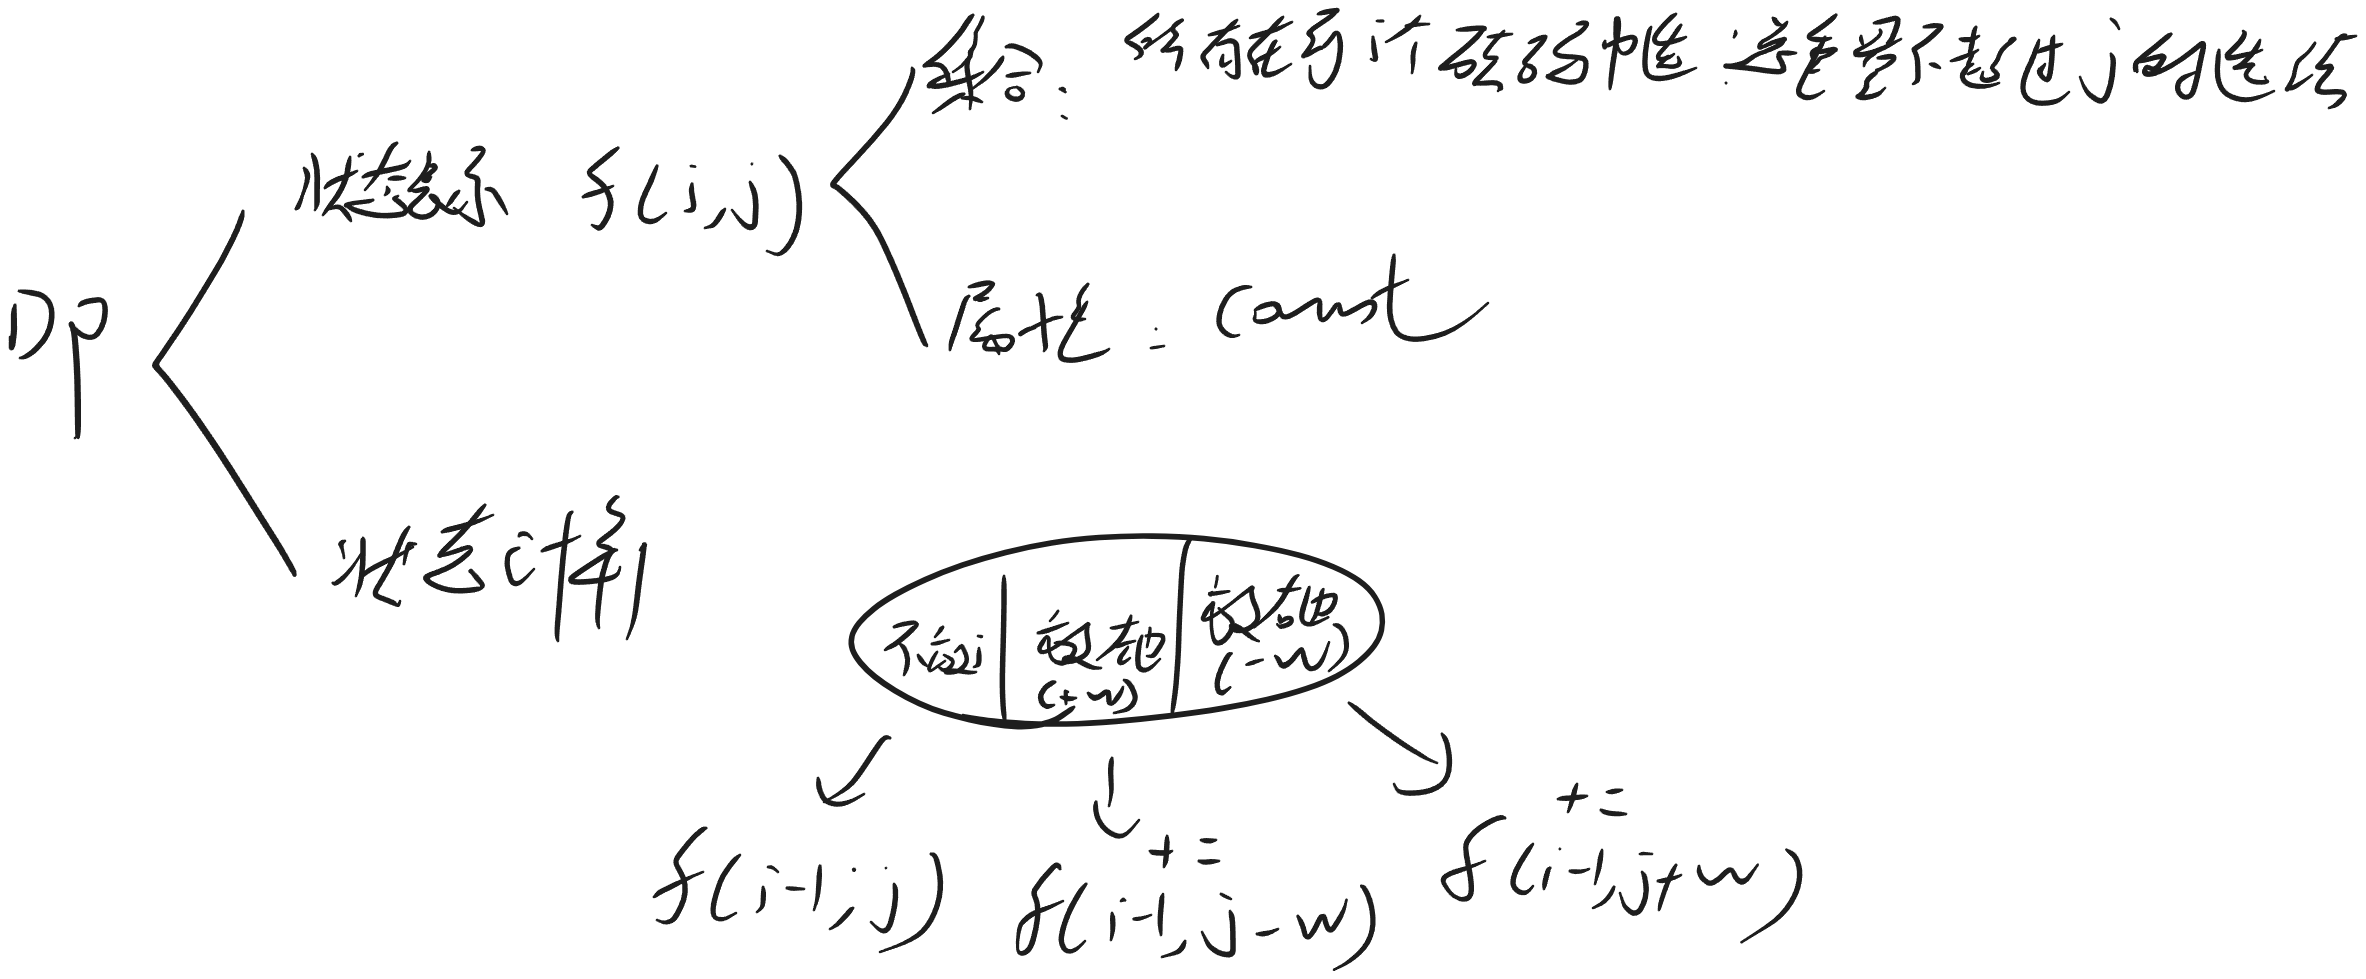 集合: 所有在前i个砝码中选 总重量不超过j的选法
状态表示 f(i,j)
DP
属性: count
状态计算
不放i
放左边
(+w)
放右边
(-w)
f(i-1,j)
+=
f(i-1,j-w)
+=
f(i-1,j+w)